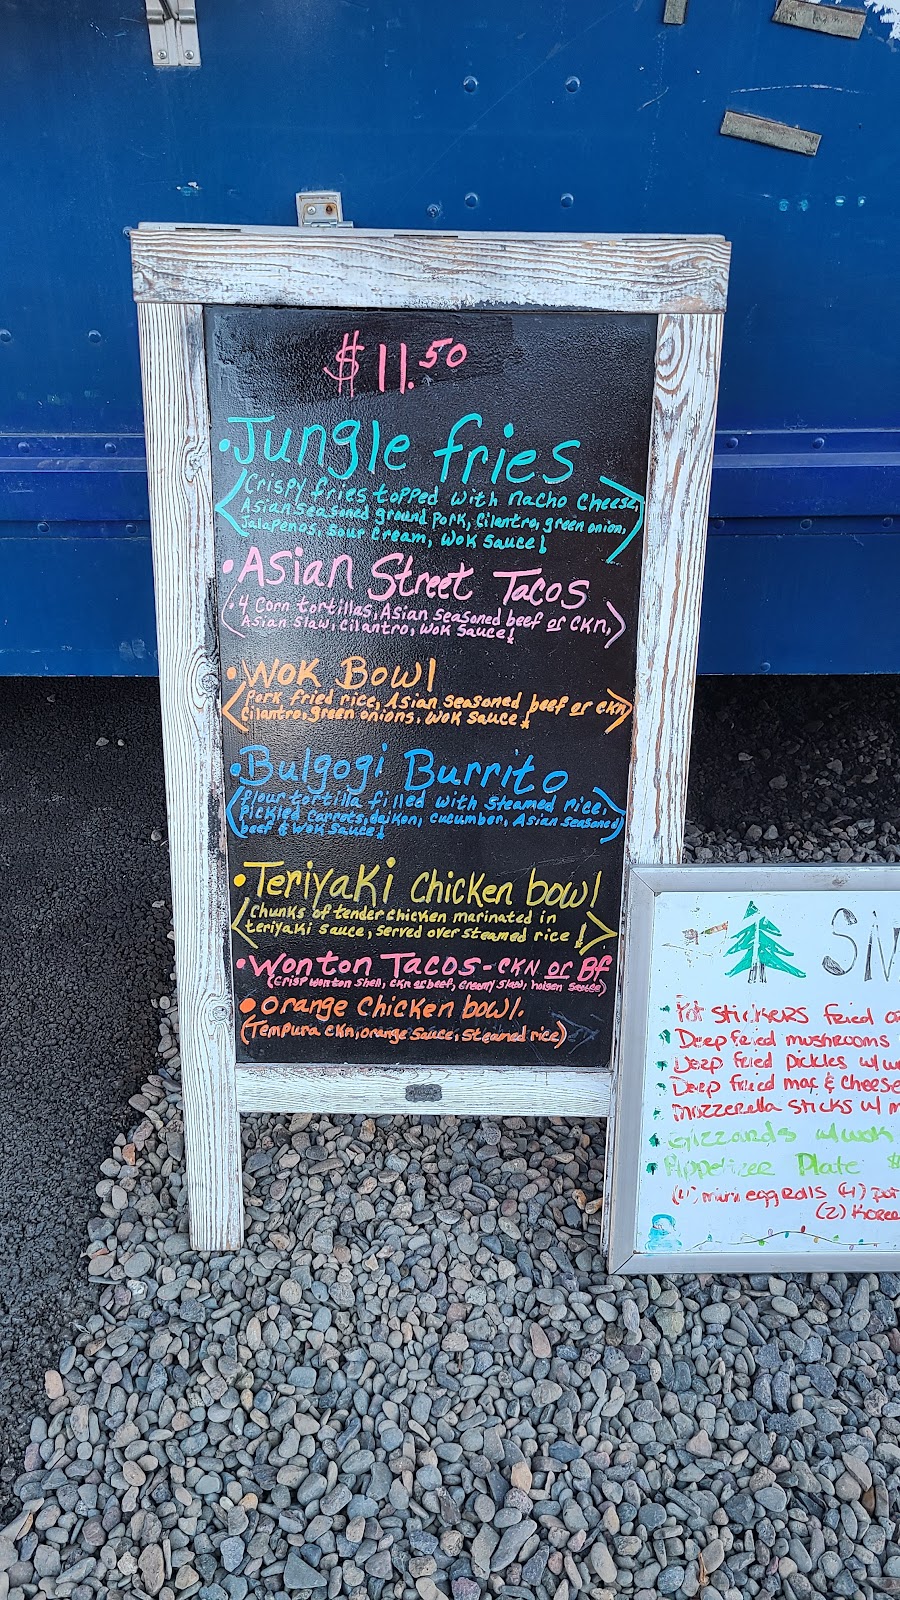 $11.50
•Jungle fries
Crispy fries topped with nacho cheese,
Asian seasoned ground pork, cilantro, green onion,
jalapenos, sour cream, wok sauce!
•Asian Street Tacos
•4 Corn tortillas, Asian seasoned beef or CKN,
Asian slaw, cilantro, wok sauce!
•Wok Bowl
Pork fried rice, Asian seasoned beef or CKN
cilantro, green onions, wok sauce!
•Bulgogi Burrito
flour tortilla filled with steamed rice,
Pickled carrots, daikon, cucumber, Asian seasoned
beef & wok sauce!
•Teriyaki chicken bowl
Chunks of tender chicken marinated in
teriyaki sauce, served over steamed rice!
•Wonton Tacos - CKN or Bf
(crisp wonton shell, ckn or beef, creamy slaw, hoisen sauce)
•orange chicken bowl.
(Tempura ckn, orange sauce, steamed rice)
SN
Pot stickers fried
Deep fried mushrooms
Deep fried pickles w/
Deep fried mac & cheese
mozzerella sticks w/ m
gizzards w/wok
Appetizer Plate $
(4) mini eggrolls (4) pot
(2) Korea